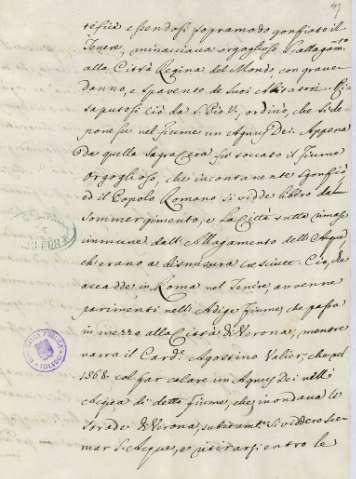 tefice essendosi sopramodo gonfiato il
Tevere, minacciava orgoglioso l'allagam.to
alla Città Regina del Mondo, con grave
danno, e spavento de suoi Abitatori.
saputosi ciò da S. Pio V. ordinò, che si de-
ponesse nel fiume un Agnus Dei. Appena
da quella sagra Cera fu toccato il Fiume
Orgoglioso, che incontanente sgonfiò,
ed il Popolo Romano si vidde libero dal
Sommergimento, e la Città tutta rimase
immune dall'Allagamento dell'Acque,
ch'erano a dismisura cresciute. Ciò, che
accadde in Roma nel Tevere, avvenne
parimenti nell'Adige fiume, che passa
in mezzo alla Città di Verona, mentre
narra il Card. Agostino Valier, che nel
1568 col far calare un Agnus Dei nell'
Acqua di detto fiume, che inondava le
strade di Verona, subitam.te si viddero sce-
mar l'Acque, e ritirarsi entro le